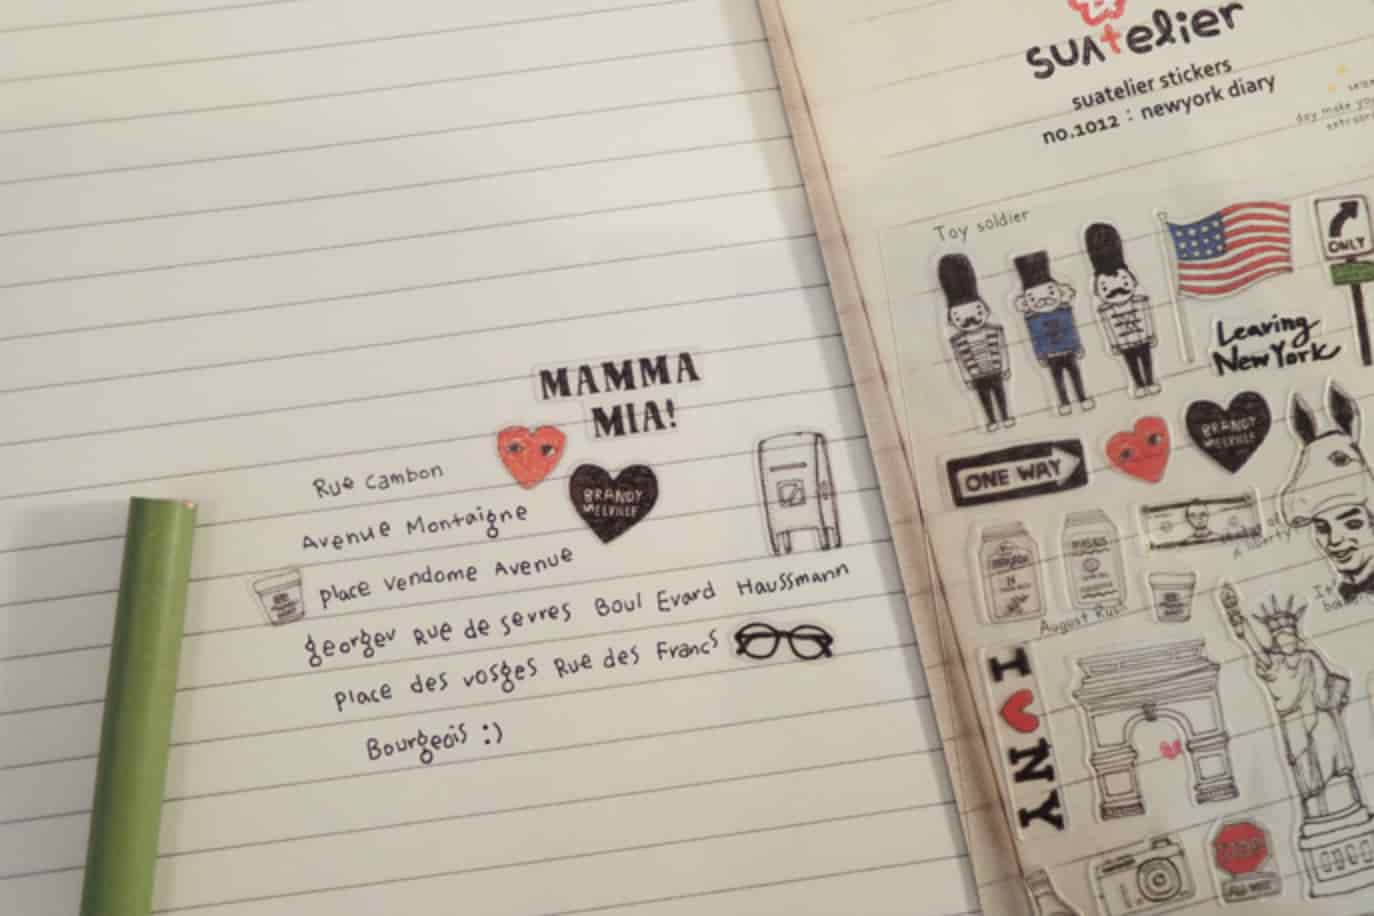 suatelier
suatelier stickers
no.1012 : newyork diary
day make you
Toy soldier
ONLY
Leaving
NewYork
MAMMA
MIA!
BRANDY
MELVILLE
BRANDY
MELVILLE
ONE WAY
Rue Cambon
Avenue Montaigne
place vendome Avenue
georgev Rue de sevres Boul Evard Haussmann
place des vosges Rue des Francs
Bourgeois :)
August Rush
I
NY
STOP
ALL WAY